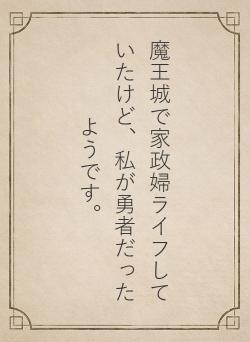 魔王城で家政婦ライフして
いたけど、私が勇者だった
ようです。